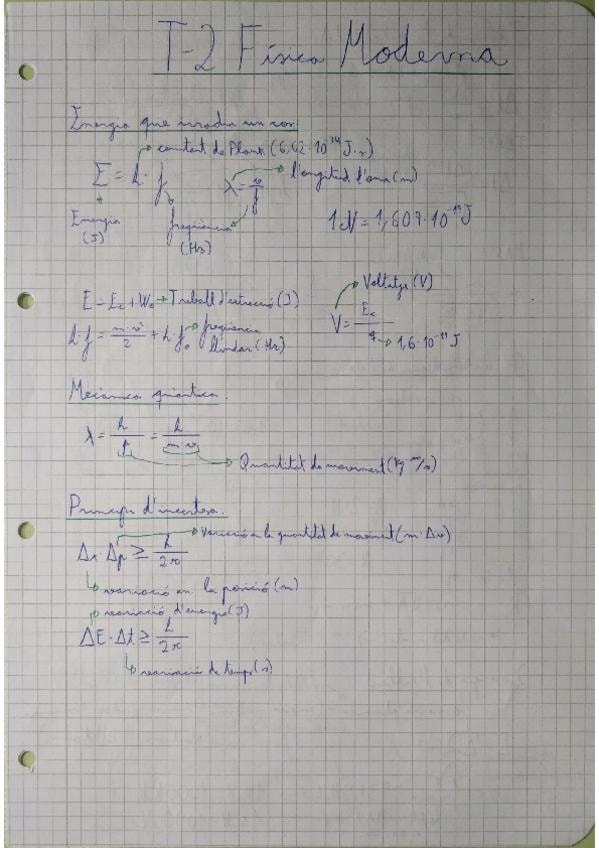 T-2 Física Moderna
Energia que irradia un cos
constant de Plank (6,62·10⁻³⁴ J·s)
E = h · f
λ = v/f
longitud d'ona (m)
Energia (J)
freqüència (Hz)
1,609·10⁻¹⁹ J
E = Ec + W₀ → Treball d'extracció (J)
h·f = m·v²/2 + h·f₀ → freqüència llindar (Hz)
Voltatge (V)
V = Ec/q → 1,6·10⁻¹⁹ J
Mecànica quàntica
λ = h/p = h/m·v
Quantitat de moviment (kg·m/s)
Principi d'incertesa.
Variació en la quantitat de moviment (m·Δv)
Δx·Δp ≥ h/2π
variació en la posició (m)
variació d'energia (J)
ΔE·Δt ≥ h/2π
variació de temps (s)